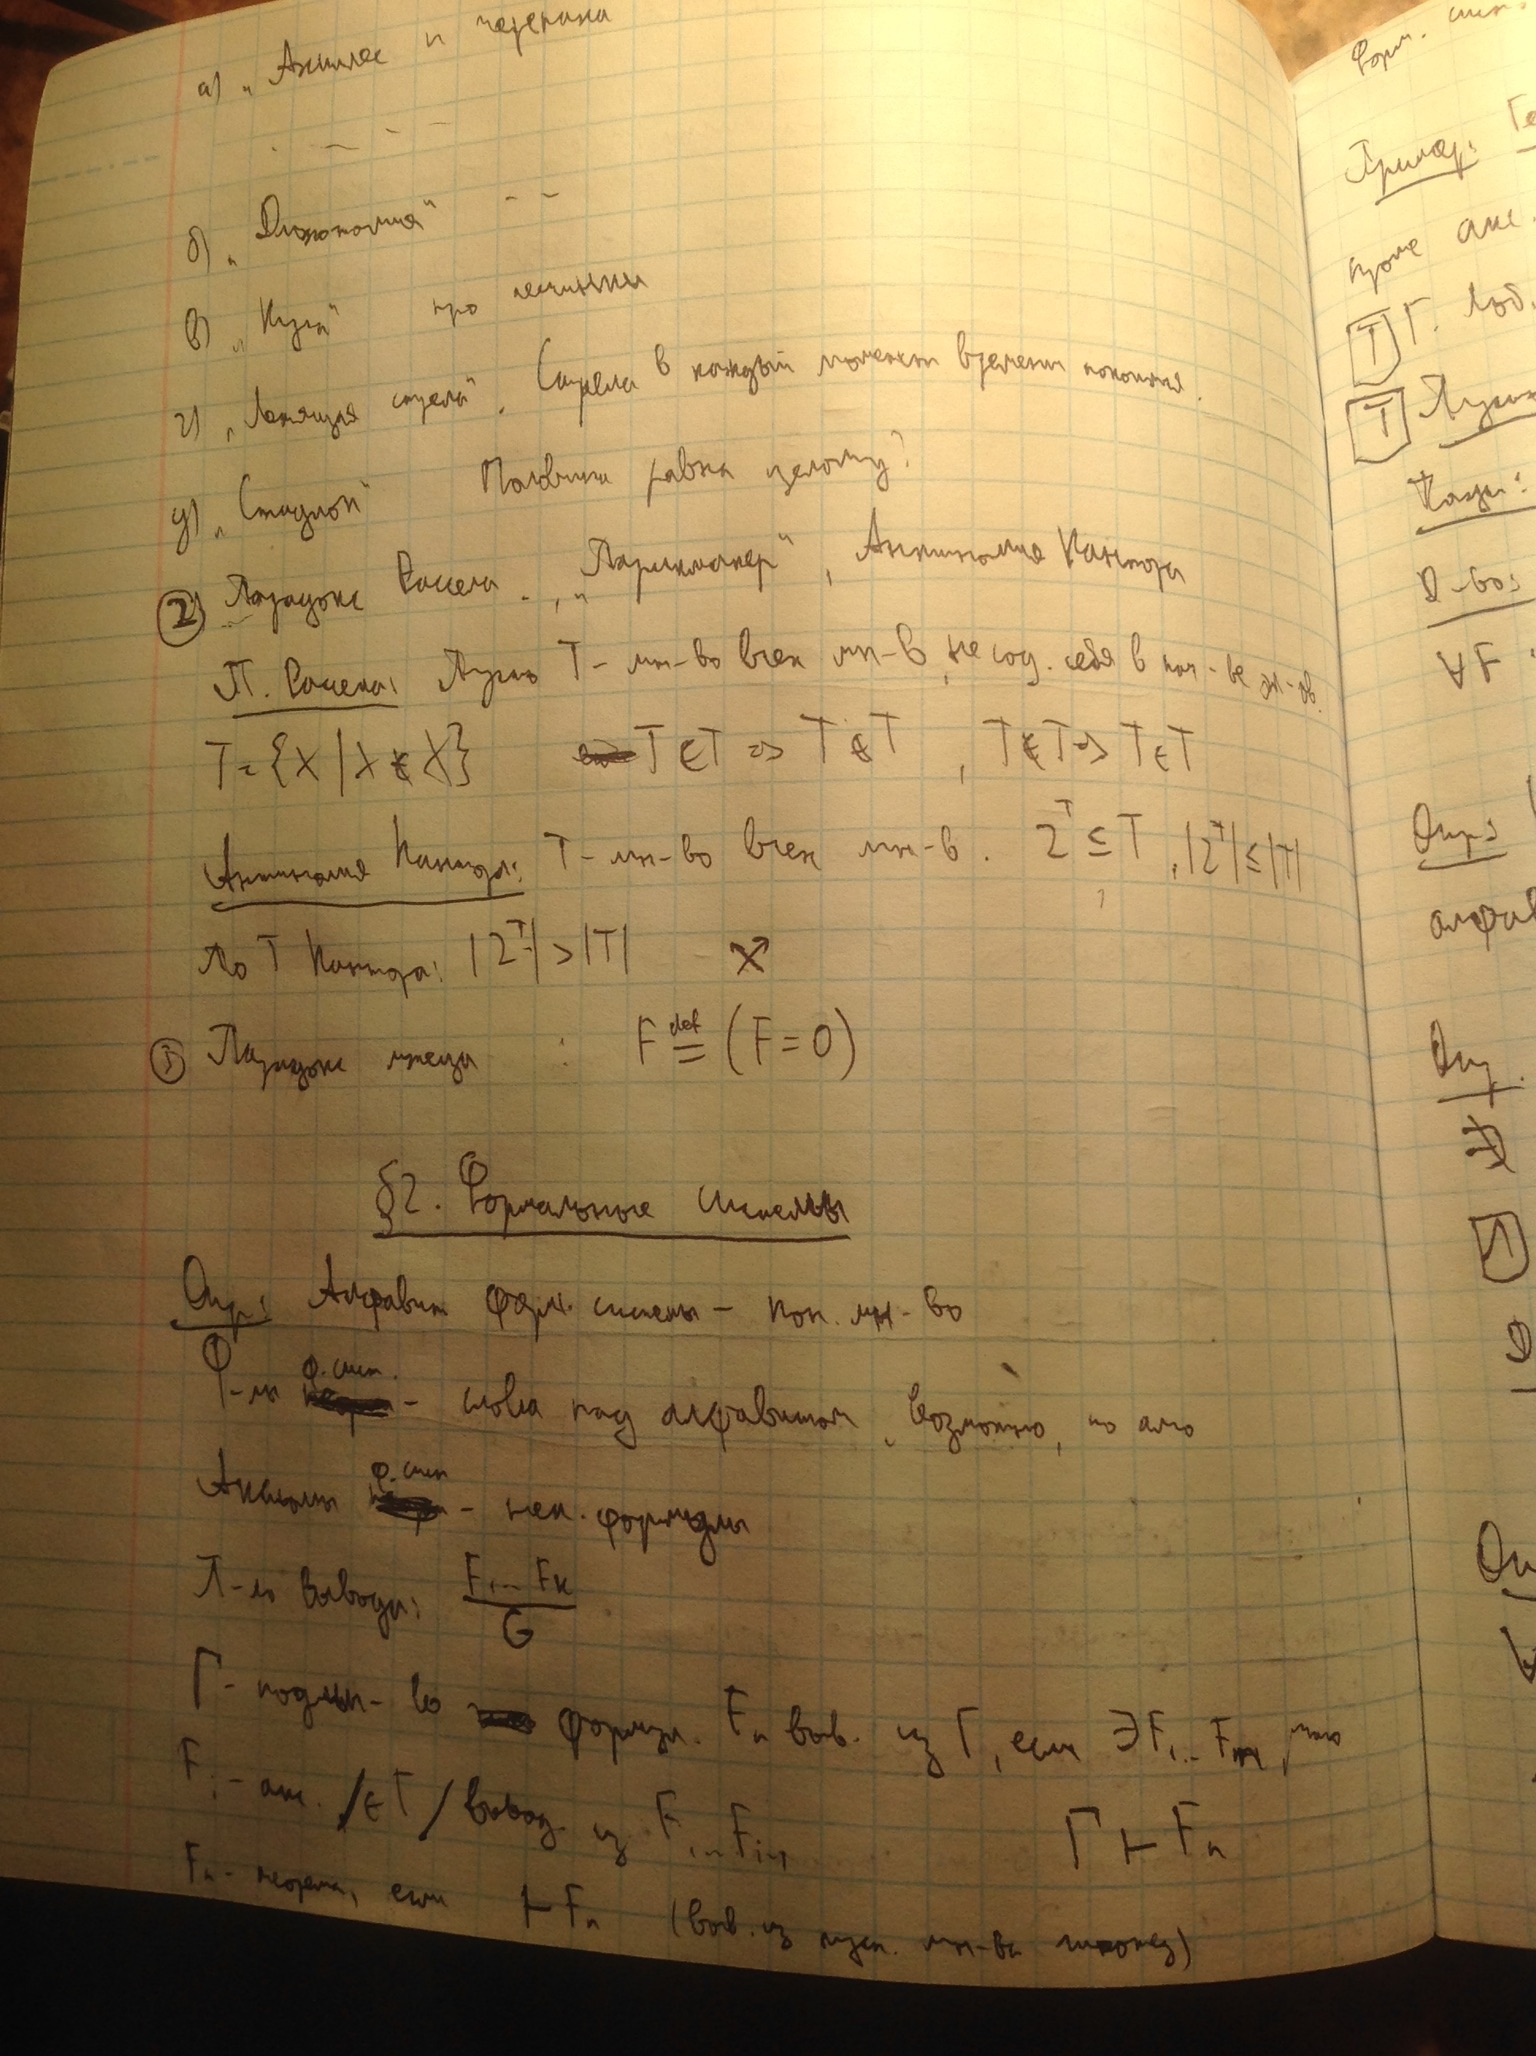 а) „Ахиллес и черепаха
б) „Дихотомия“
в) „Куча“ про песчинки
г) „Летящая стрела“. Стрела в каждый момент времени покоится.
д) „Стадион“ Половина равна целому?
② Парадокс Рассела. , „Парикмахер“, Антиномия Кантора
П. Рассела: Пусть T - мн-во всех мн-в, не сод. себя в кач-ве эл-ов.
T = {X | X ∉ X} T ∈ T ⇒ T ∉ T, T ∉ T ⇒ T ∈ T
Антиномия Кантора: T - мн-во всех мн-в. 2^T ⊆ T, |2^T| ≤ |T|
По Т Кантора: |2^T| > |T|
③ Парадокс лжеца : F ≝ (F = 0)
§2. Формальные системы
Опр: Алфавит форм. системы - кон. мн-во
Ф-лы ф. сист. - слова над алфавитом, возможно, не
Аксиомы ф. сист - нек. формулы
П-ло вывода: F₁...Fₖ / G
Γ - подмн-во формул. Fₙ выв. из Γ, если ∃F₁...Fₙ, что
Fᵢ - акс. / ∈ Γ / вывод. из F₁...Fᵢ₋₁ Γ ⊢ Fₙ
Fₙ - теорема, если ⊢ Fₙ (выв. из пуст. мн-ва гипотез)
Форм. сист.
Пример:
кроме акс.
Т Г. Люб.
Т
Казы:
Д-во:
∀F
Опр:
алфав
Опр.
Л
Д